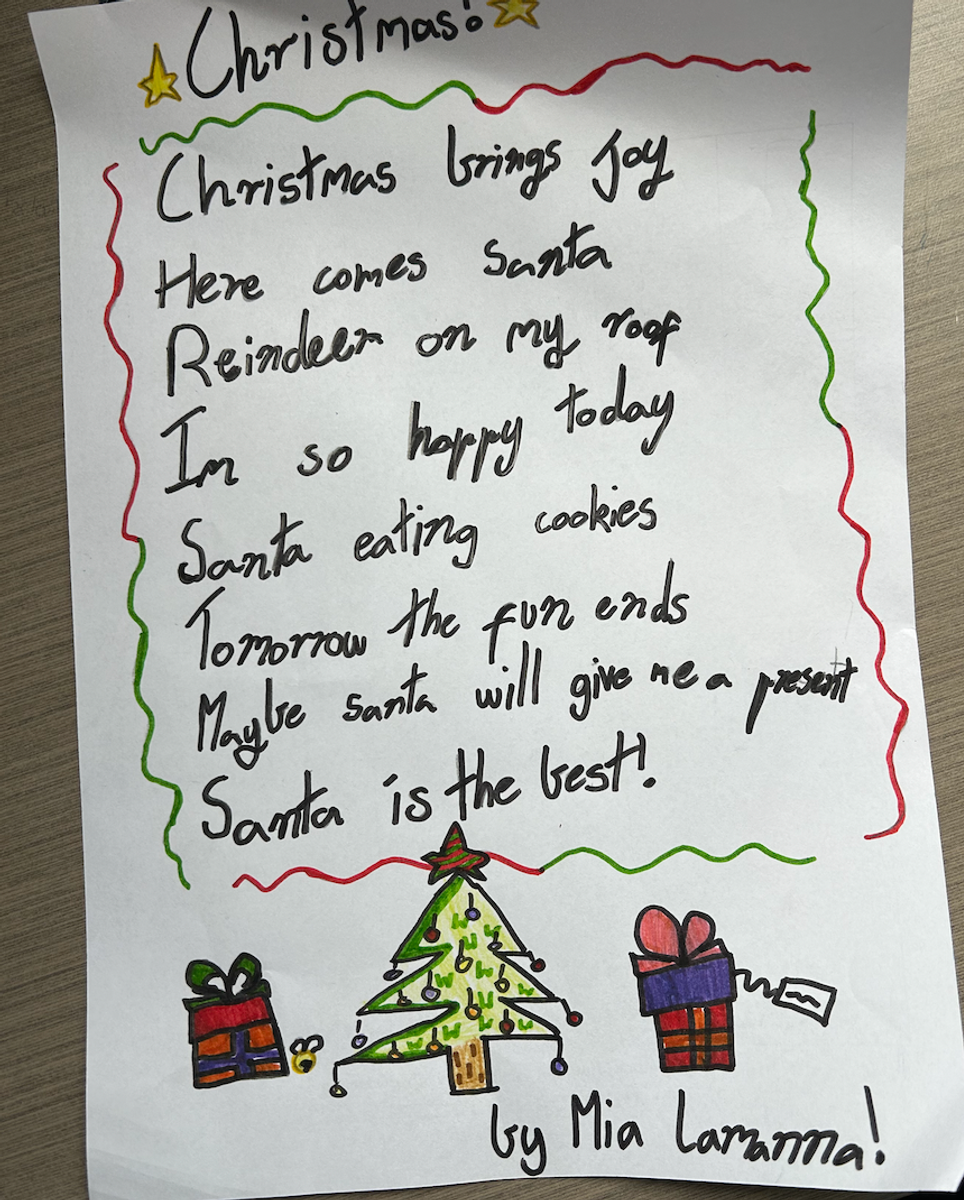 Christmas!
Christmas brings Joy
Here comes Santa
Reindeer on my roof
Im so happy today
Santa eating cookies
Tomorrow the fun ends
Maybe santa will give me a present
Santa is the best!
by Mia Lamanna!